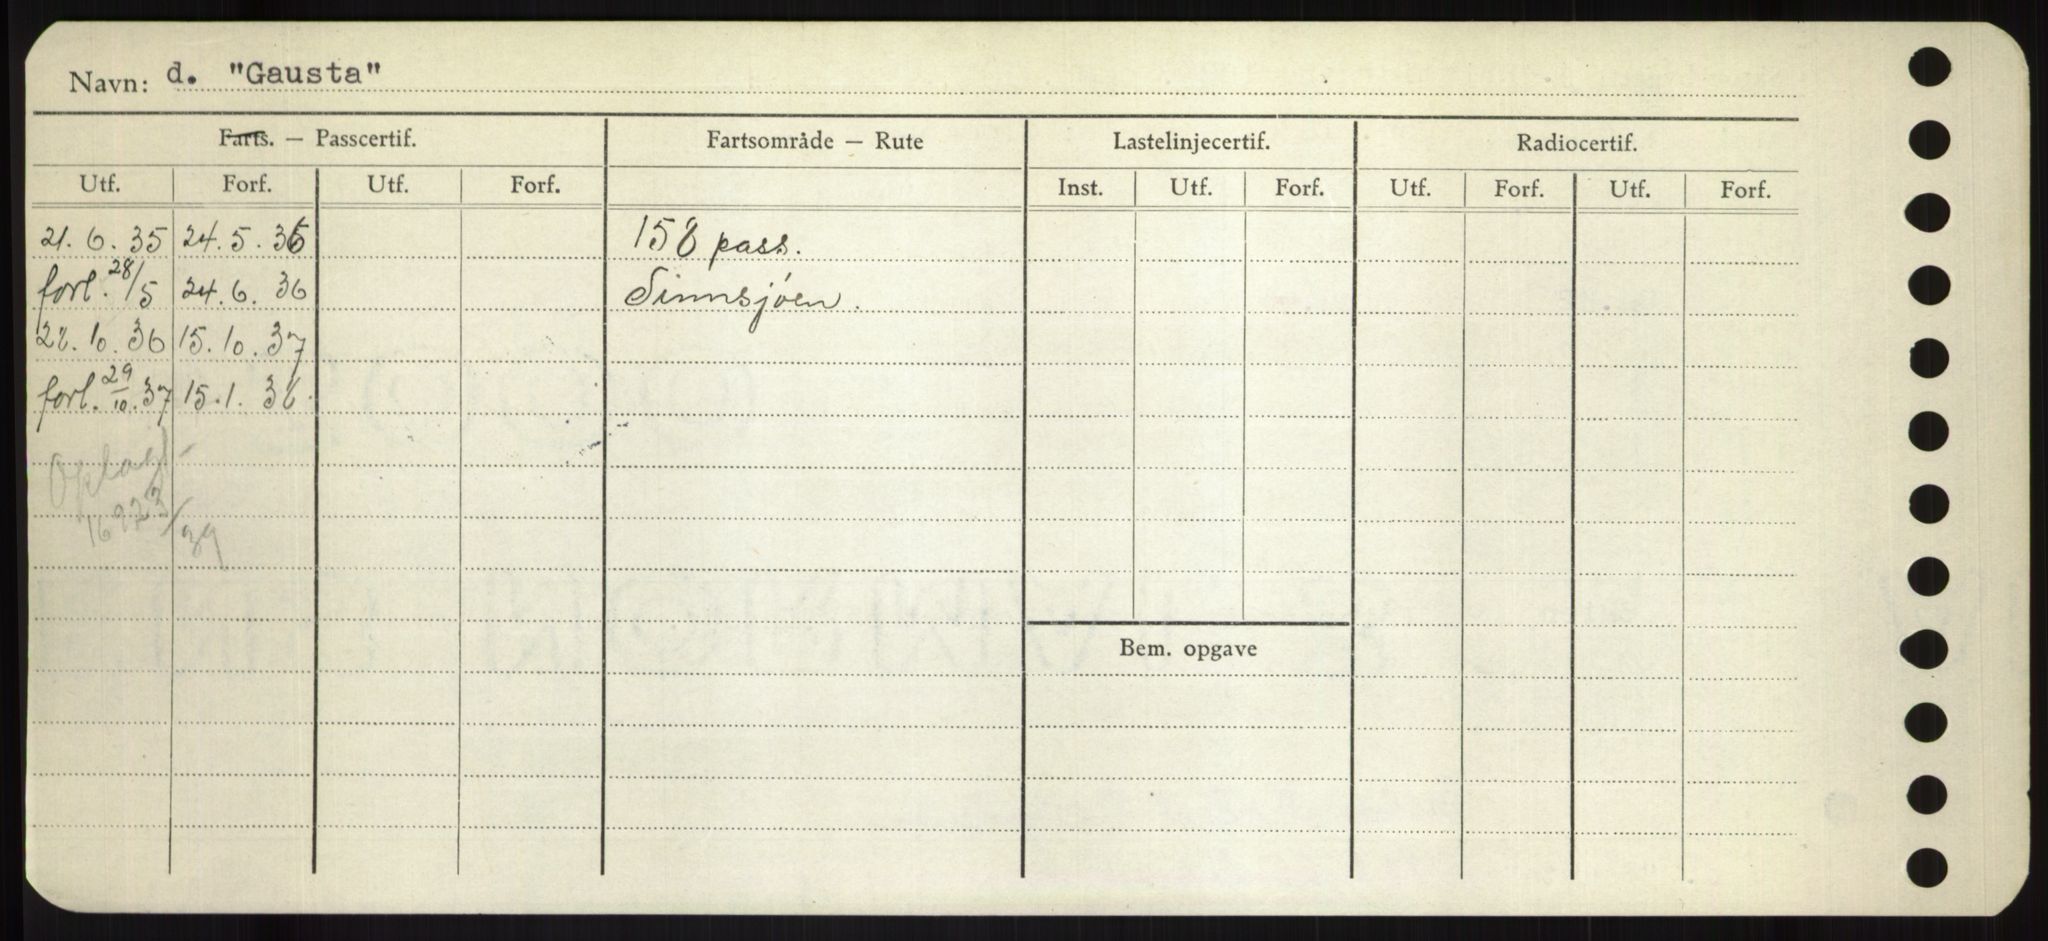 Navn: d. "Gausta"
Farts. — Passcertif. Fartsområde — Rute Lastelinjecertif. Radiocertif.
Utf. Forf. Utf. Forf. Inst. Utf. Forf. Utf. Forf. Utf. Forf.
21. 6. 35 24. 5. 36 158 pass.
forl. 28/5 24. 6. 36 Tinnsjøen.
22. 10. 36 15. 10. 37
forl. 29/10. 37 15. 1. 38.
Oplagt
16223/39
Bem. opgave